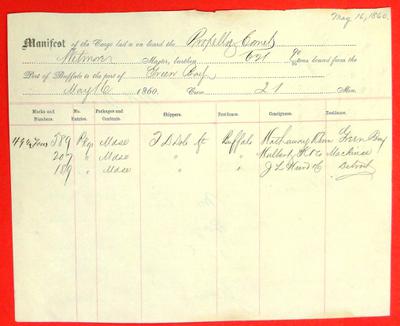 May 16, 1860.
Manifest of the Cargo laden on board the Propeller Comet
Wetmore Master, burthen 621 90 Tons bound from the
Port of Buffalo to the port of Green Bay
May 16 1860. Crew 21 Men.
Marks and Numbers. No. Entries. Packages and Contents. Shippers. Residence. Consignees. Residence.
589 Pkgs Mdse Buffalo Green Bay
207 " Mdse " " Mackinac
189 " Mdse " " Detroit